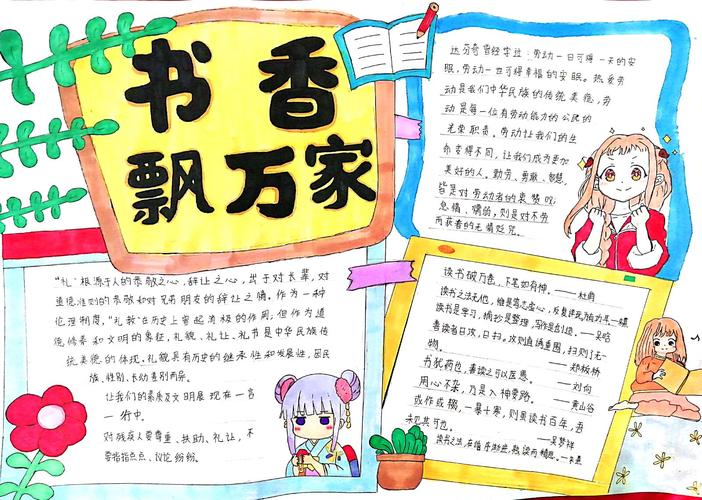 书香
飘万家
达芬奇曾经字过：劳动一日可得一夜的安
眠，劳动一世可得幸福的安眠。热爱劳
动是我们中华民族的传统美德，劳
动是每一位有劳动能力的公民的
光荣职责，劳动让我们的生
命变得不同，让我们成为更加
美好的人。勤劳、勇敢、智慧，
皆是对劳动者的衷赞啦
怠惰、懦弱，则是对不劳
而获者的无情贬咒。
"礼"根源于人的恭敬之心，辞让之心，出于对长辈，对
道德准则的恭敬和对兄弟朋友的辞让之情，作为一种
伦理制度，"礼教"在历史上曾起消极的作用；但作为道
德修养和文明的象征，礼貌、礼让、礼节是中华民族传
统美德的体现。礼貌具有历史的继承性和发展性，因民
族、性别、长幼差别而异。
让我们的素质及文明展现在一言
一行中。
对残疾人要尊重、扶助、礼让，不
要指指点点、议论纷纷。
读书破万卷，下笔如有神。——杜甫
读书之法无他，惟是笃志虚心，反复详玩，为有功耳——朱熹
读书是学习，摘抄是整理，写作是创造。——吴晗
善读者日攻，日扫。攻则直透重围，扫则了无一
物。——郑板桥
书犹药也，善读之可以医愚。——刘向
用心不杂，乃是入神要路。——黄山谷
或作或辍，一暴十寒，则虽读书百年，吾
未见其可也。——吴梦祥
读书之法，在循序渐进，熟读而精思。——朱熹